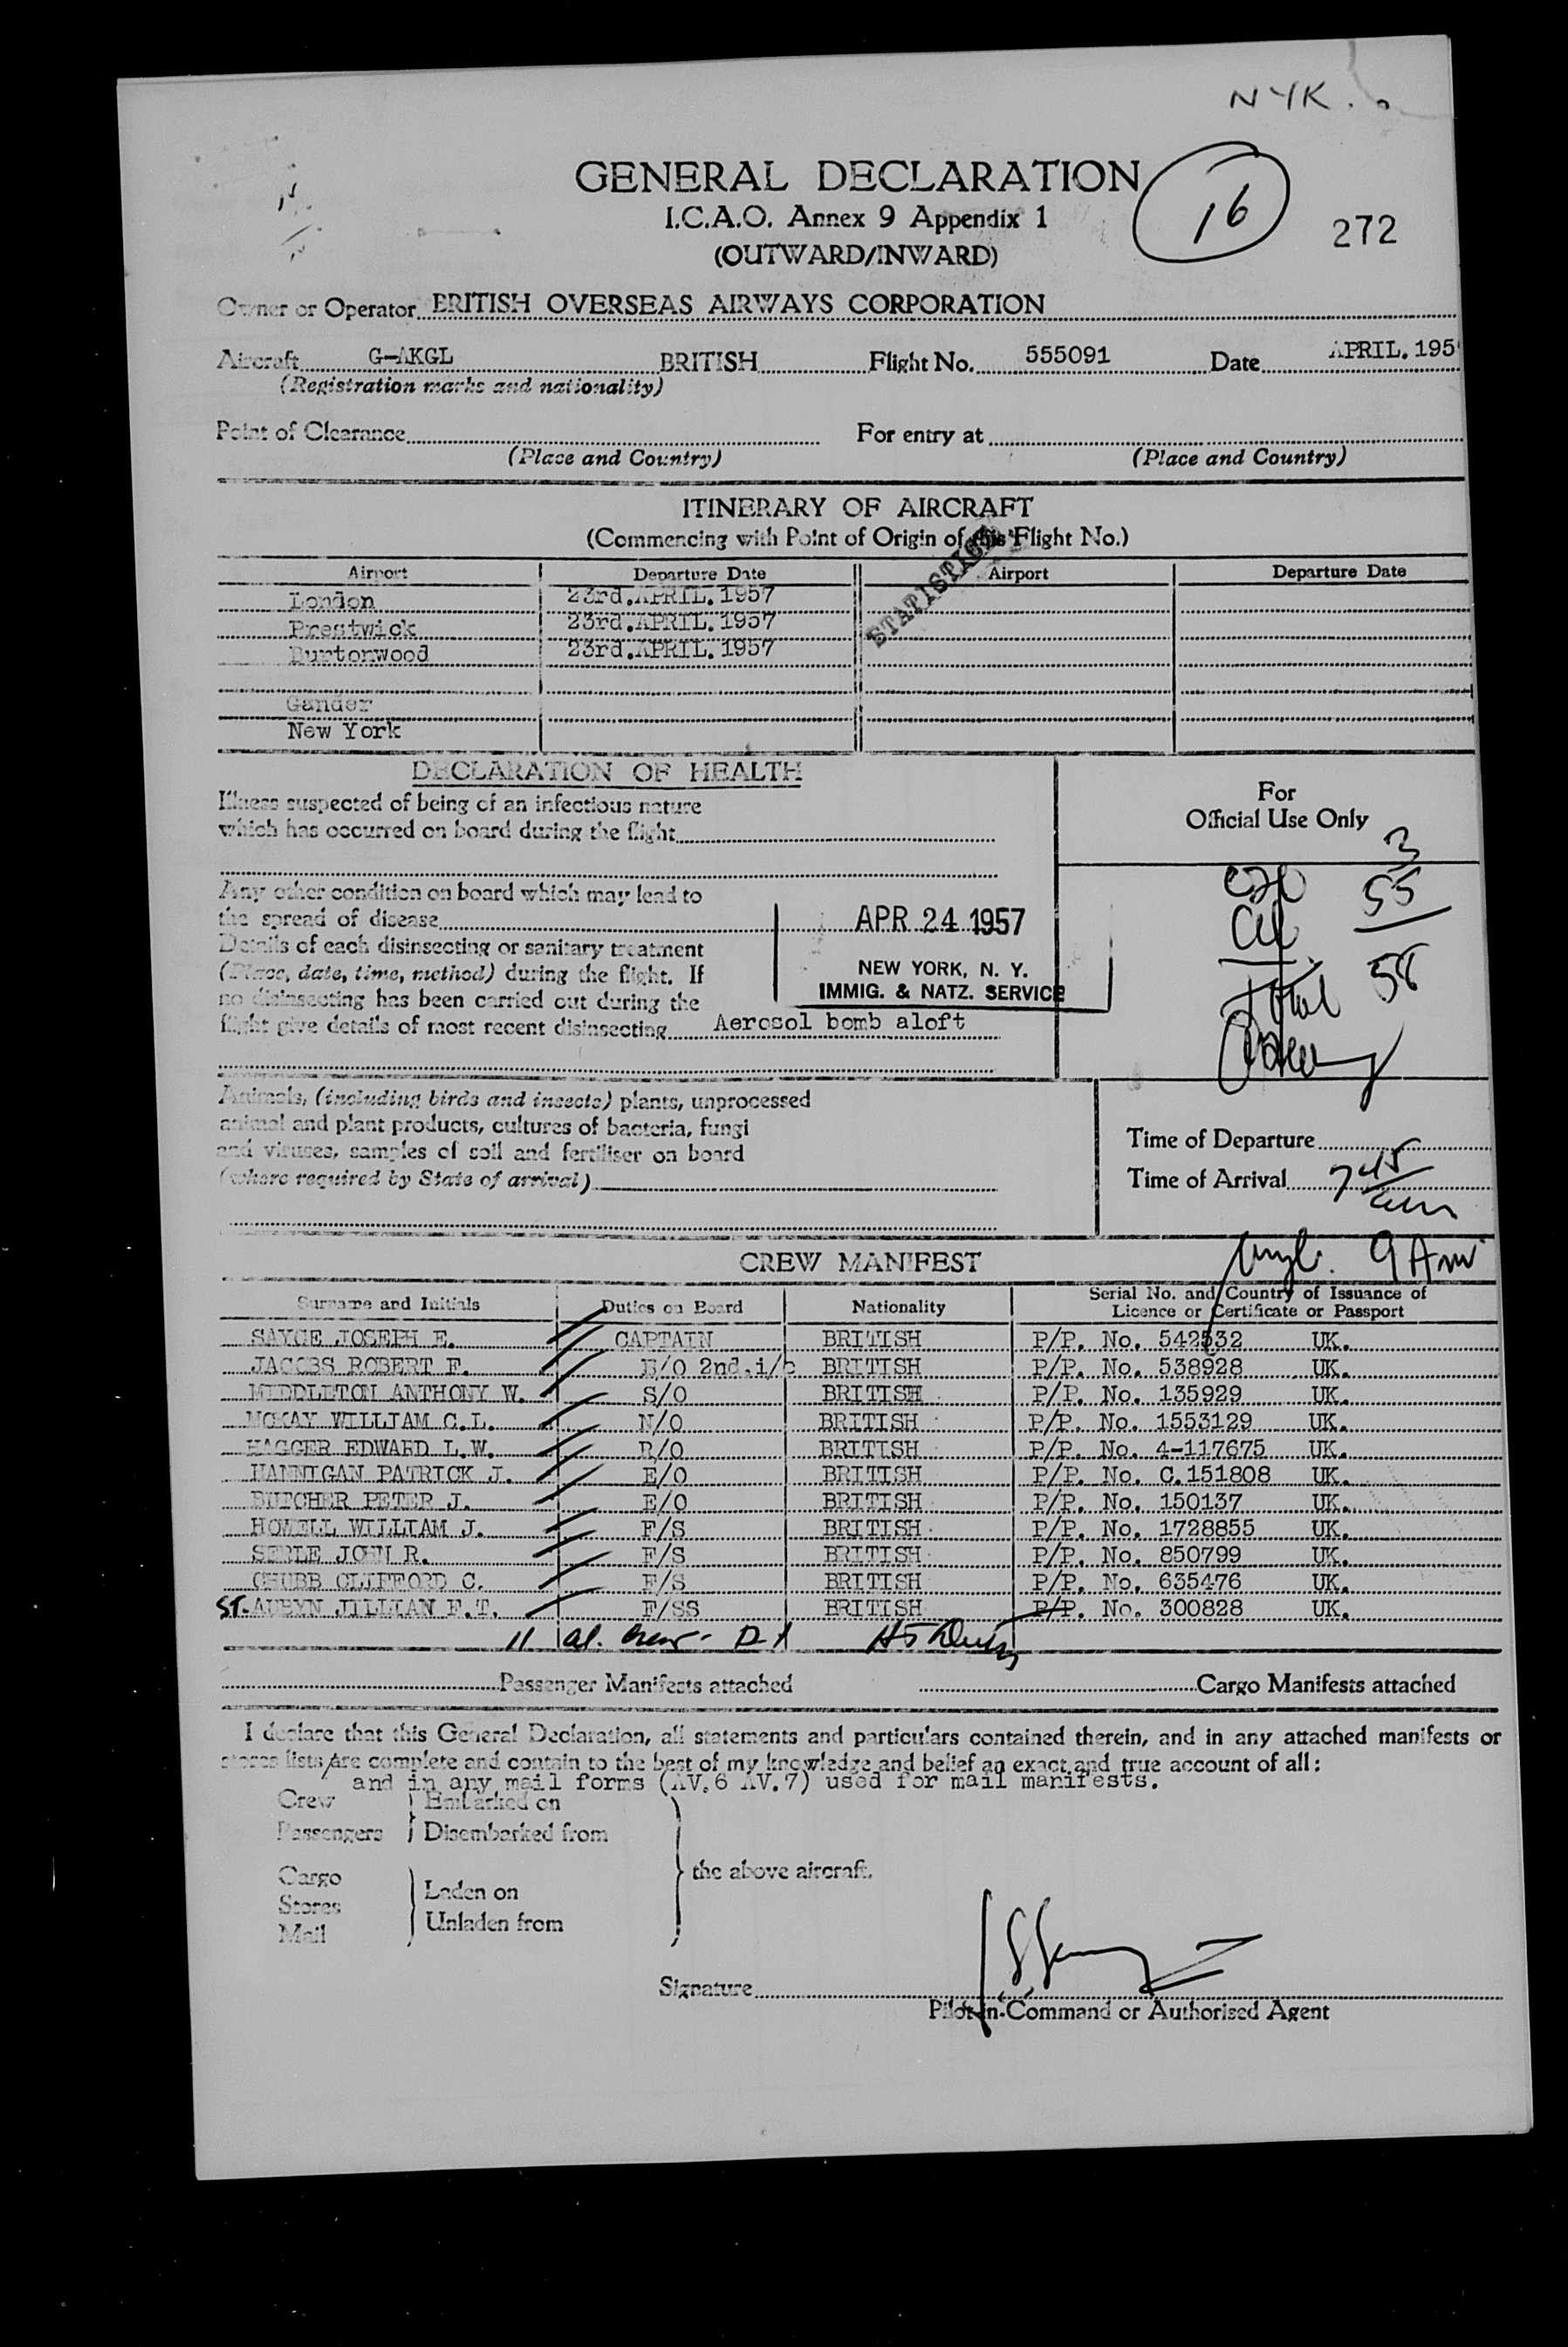 NYK.
GENERAL DECLARATION
I.C.A.O. Annex 9 Appendix 1
(OUTWARD/INWARD)
16
272
Owner or Operator BRITISH OVERSEAS AIRWAYS CORPORATION
Aircraft G-AKGL BRITISH Flight No. 555091 Date APRIL.195
(Registration marks and nationality)
Point of Clearance For entry at
(Place and Country) (Place and Country)
ITINERARY OF AIRCRAFT
(Commencing with Point of Origin of this Flight No.)
STATISTICS
Airport Departure Date Airport Departure Date
London 23rd.APRIL.1957
Prestwick 23rd.APRIL.1957
Burtonwood 23rd.APRIL.1957
Gander
New York
DECLARATION OF HEALTH
Illness suspected of being of an infectious nature
which has occurred on board during the flight
Any other condition on board which may lead to
the spread of disease
Details of each disinsecting or sanitary treatment
(Place, date, time, method) during the flight. If
no disinsecting has been carried out during the
flight give details of most recent disinsecting Aerosol bomb aloft
APR 24 1957
NEW YORK, N. Y.
IMMIG. & NATZ. SERVICE
For
Official Use Only
3
55
Total 58
Animals, (including birds and insects) plants, unprocessed
animal and plant products, cultures of bacteria, fungi
and viruses, samples of soil and fertiliser on board
(where required by State of arrival)
Time of Departure
Time of Arrival 745 am
9 Am
CREW MANIFEST
Surname and Initials Duties on Board Nationality Serial No. and Country of Issuance of
Licence or Certificate or Passport
SAYCE JOSEPH E. CAPTAIN BRITISH P/P. No. 542532 UK.
JACOBS ROBERT F. F/O 2nd.i/c BRITISH P/P. No. 538928 UK.
MIDDLETON ANTHONY W. S/O BRITISH P/P. No. 135929 UK.
MCKAY WILLIAM C.L. N/O BRITISH P/P. No. 1553129 UK.
HAGGER EDWARD L.W. R/O BRITISH P/P. No. 4-117675 UK.
HANNIGAN PATRICK J. E/O BRITISH P/P. No. C.151808 UK.
BUTCHER PETER J. E/O BRITISH P/P. No. 150137 UK.
HOWELL WILLIAM J. F/S BRITISH P/P. No. 1728855 UK.
SERLE JOHN R. F/S BRITISH P/P. No. 850799 UK.
CHUBB CLIFFORD C. F/S BRITISH P/P. No. 635476 UK.
ST. AUBYN JILLIAN F.T. F/SS BRITISH P/P. No. 300828 UK.
11 al. Crew
Passenger Manifests attached Cargo Manifests attached
I declare that this General Declaration, all statements and particulars contained therein, and in any attached manifests or
stores lists/are complete and contain to the best of my knowledge and belief an exact and true account of all:
and in any mail forms (AV.6 AV.7) used for mail manifests.
Crew Embarked on
Passengers Disembarked from
the above aircraft.
Cargo
Stores Laden on
Mail Unladen from
Signature
Pilot-in-Command or Authorised Agent